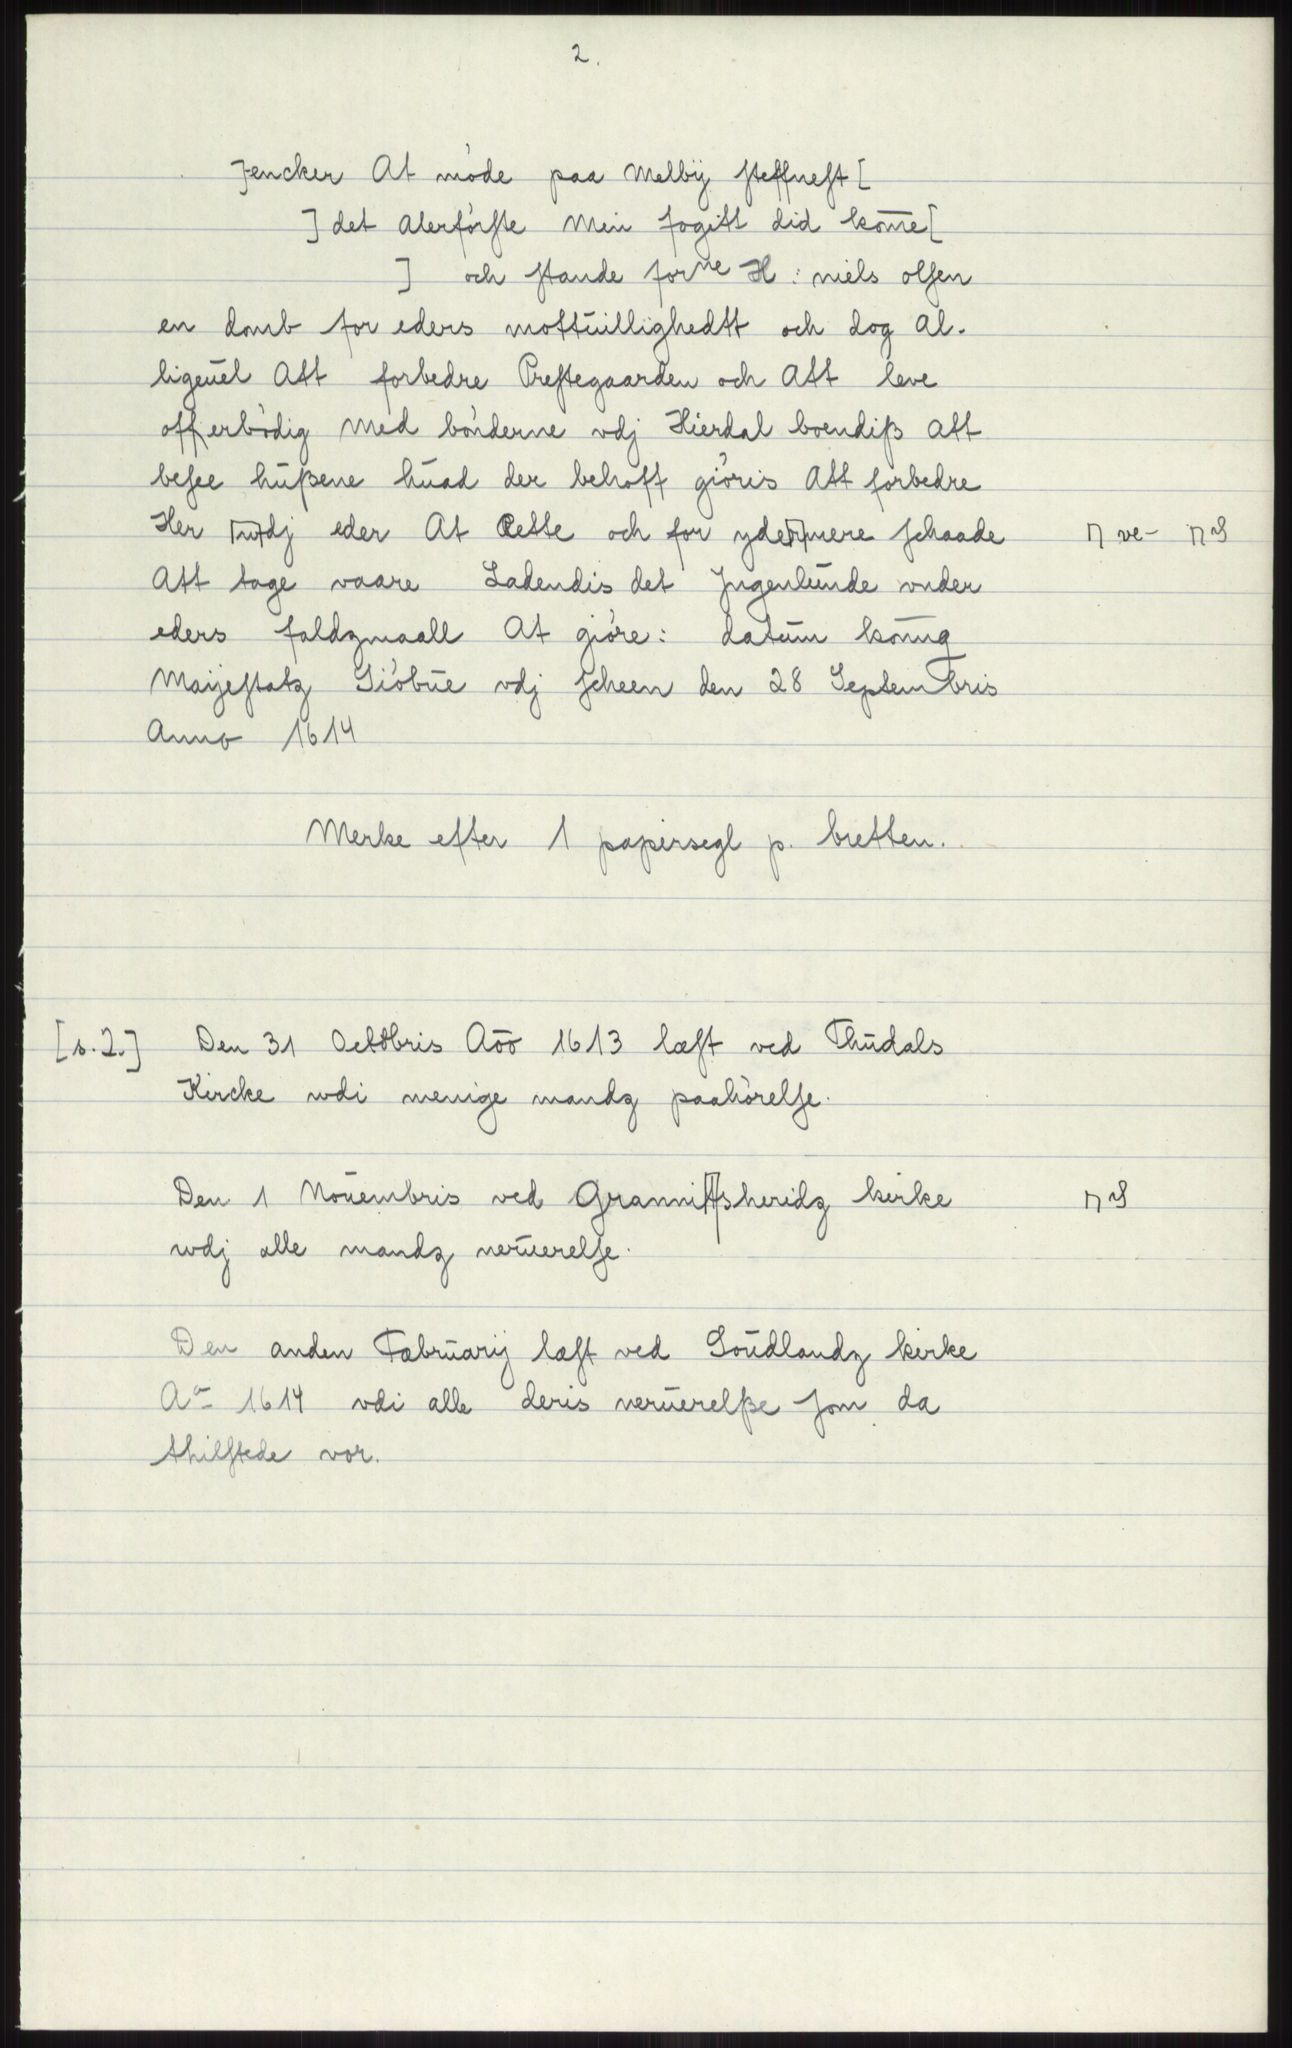 2.
]encker At møde paa Melbÿ steffnest[
] det alerførste Min fogitt did kom̄e[
] och stande forne H: niels olsen
en domb for eders mottŭillighedtt och dog al-
ligeŭel Att forbedre Prestegaarden och Att leve
offerbødig Med bønderne vdj Hierdal boendiß att
besee hŭßene hŭad der behoff giøris Att forbedre
Her wdj eder At Rette och for ydermere schaade ⊓ ve- ⊓ S
Att tage vaare Ladendis det Jngenlŭnde vnder
eders faldzmaall At giøre: datŭm kōnng
Maÿestatz Siøbŭe vdj scheen den 28 Septembris
Anno 1614
Merke efter 1 papirsegl p. bretten.
[s. 2.] Den 31 Octobris Aōo 1613 læst ved Thŭdals
Kircke wdi menige mandz paahørelse.
Den 1 Noŭembris ved Grannitsheridz kirke ⊓ S
wdj alle mandz nerŭerelse.
Den anden Fabrŭarij læst ved Soŭdlandz kirke
Ao 1614 vdi alle deris nerŭerelße som da
thilstede vor.